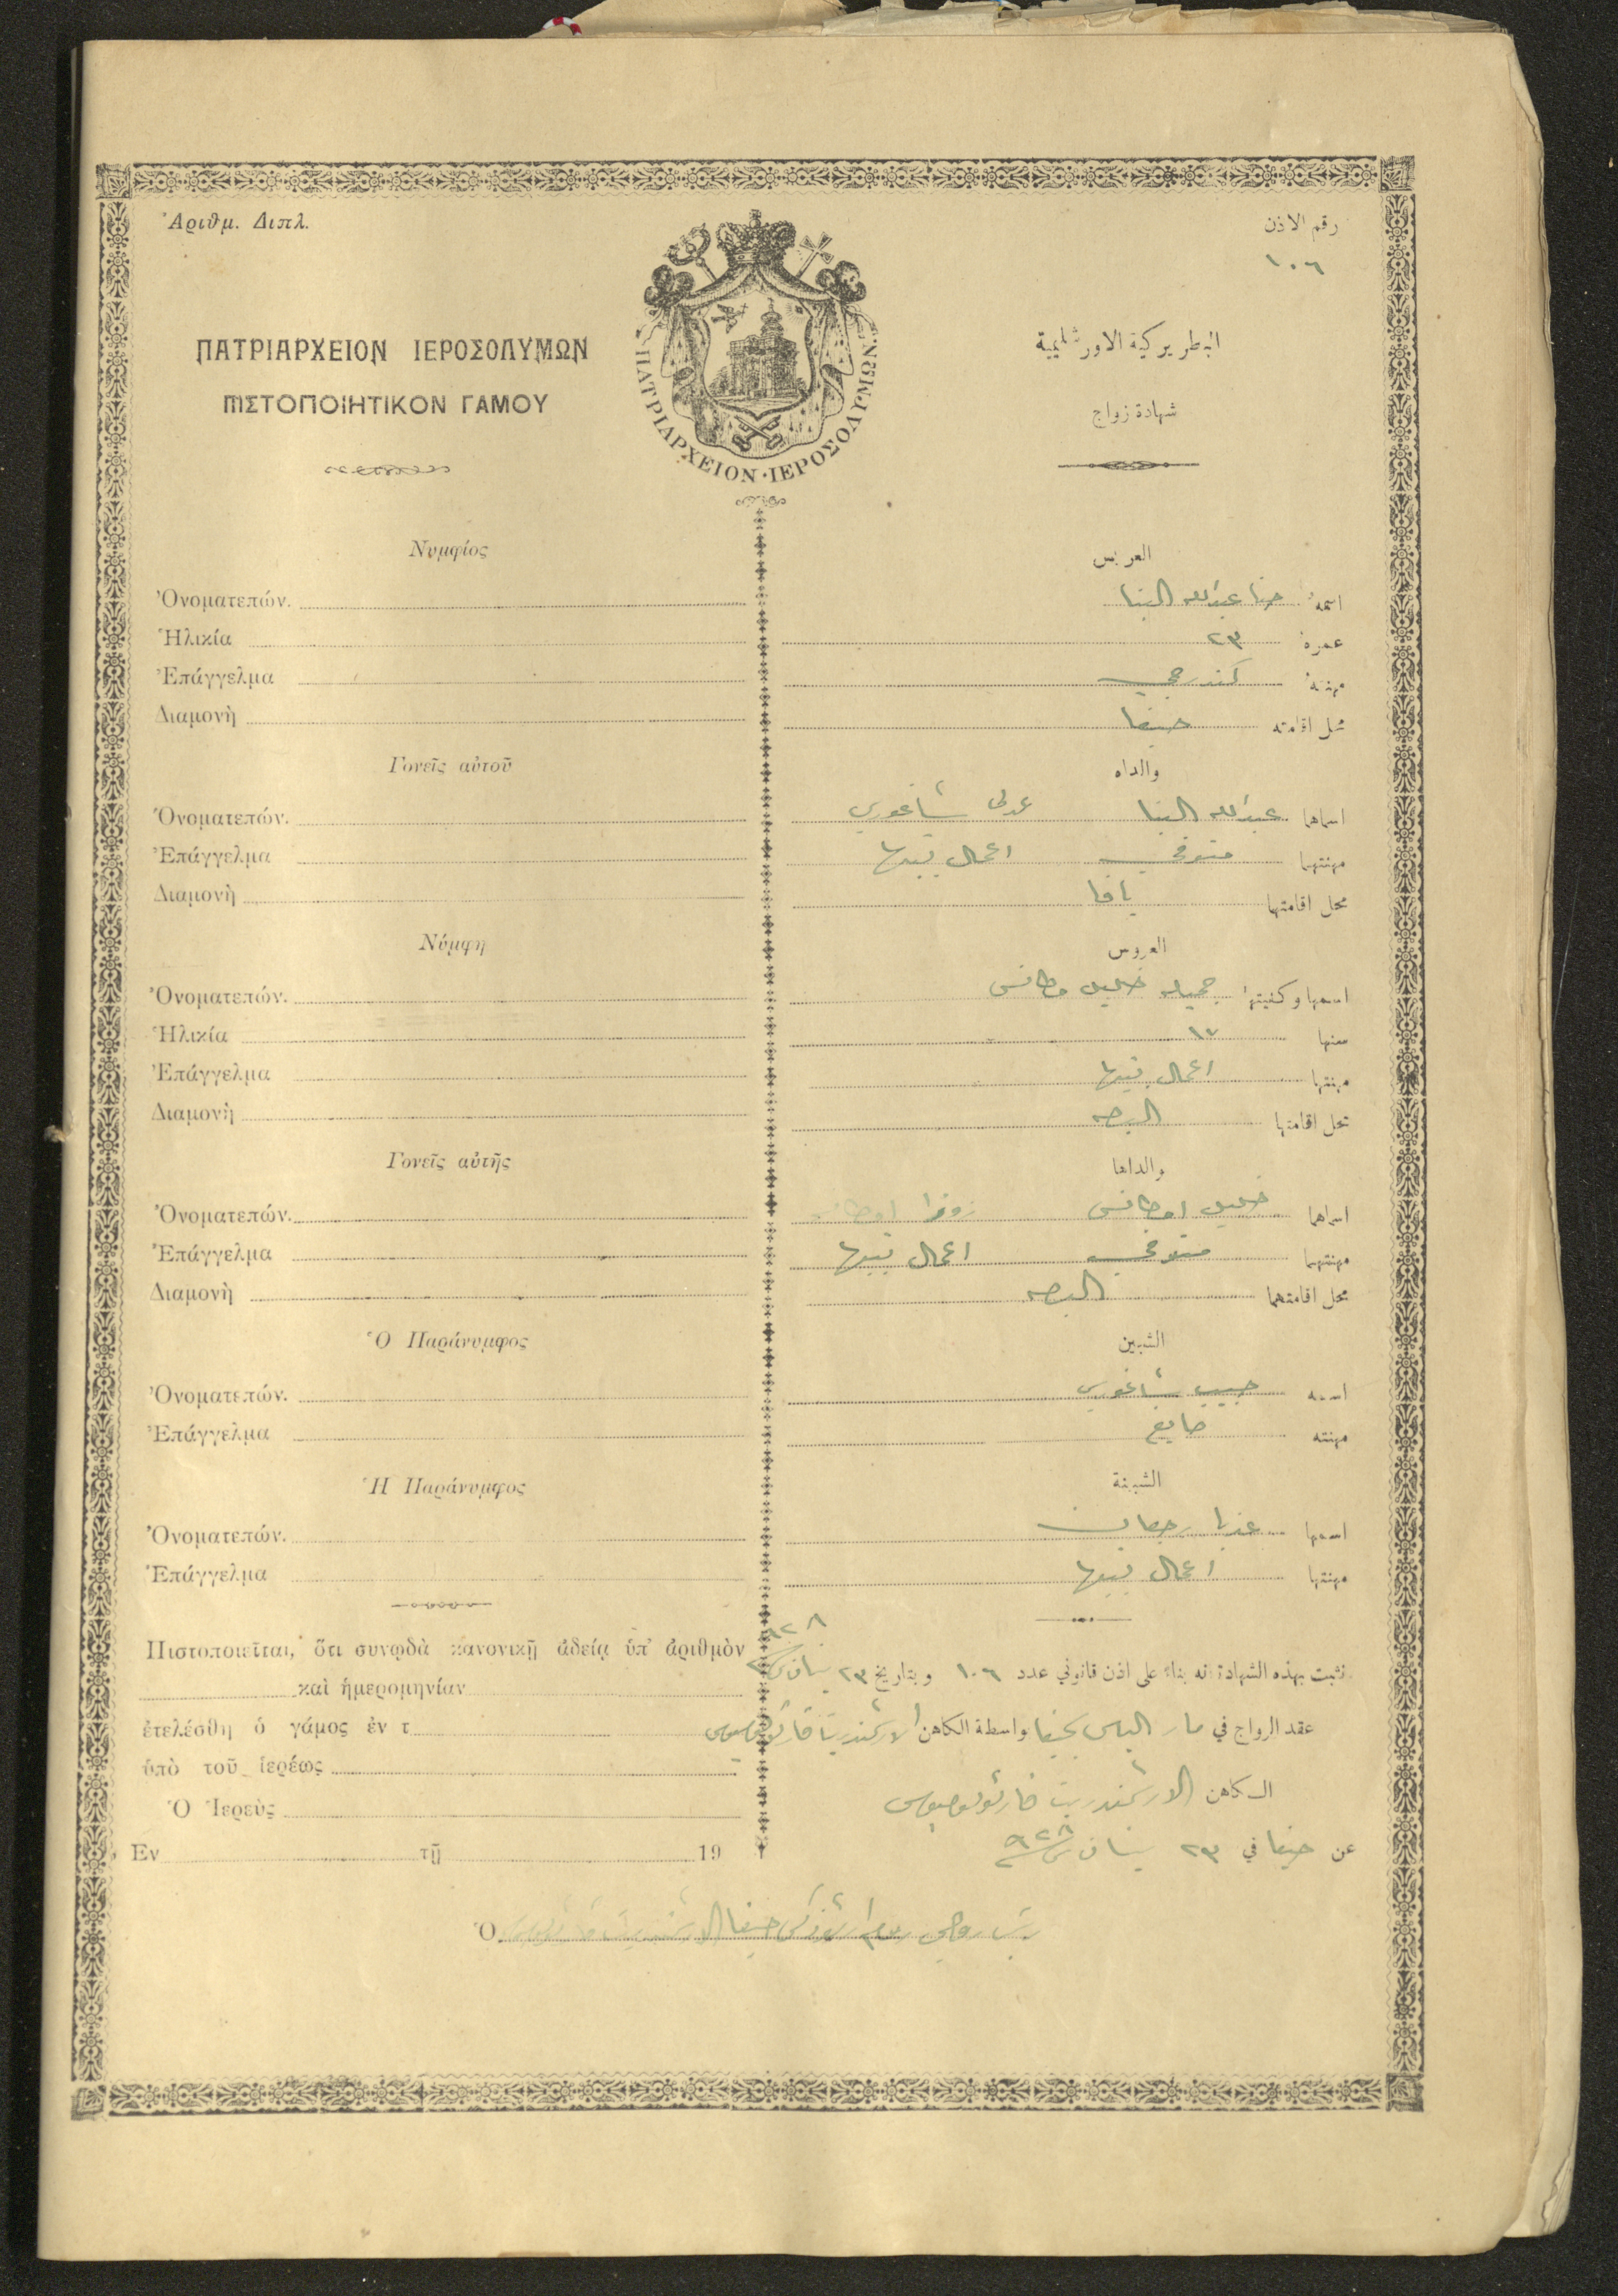 Ἀριθμ. Διπλ.
رقم الاذن
١٠٦
ΠΑΤΡΙΑΡΧΕΙΟΝ ΙΕΡΟΣΟΛΥΜΩΝ
ΠΙΣΤΟΠΟΙΗΤΙΚΟΝ ΓΑΜΟΥ
ΠΑΤΡΙΑΡΧΕΙΟΝ·ΙΕΡΟΣΟΛΥΜΩΝ.
البطريركية الاورشليمية
شهادة زواج
Νυμφίος
Ὀνοματεπών.
Ἡλικία
Ἐπάγγελμα
Διαμονὴ
Γονεῖς αὐτοῦ
Ὀνοματεπών.
Ἐπάγγελμα
Διαμονὴ
Νύμφη
Ὀνοματεπών.
Ἡλικία
Ἐπάγγελμα
Διαμονὴ
Γονεῖς αὐτῆς
Ὀνοματεπών.
Ἐπάγγελμα
Διαμονὴ
Ὁ Παράνυμφος
Ὀνοματεπών.
Ἐπάγγελμα
Ἡ Παράνυμφος
Ὀνοματεπών.
Ἐπάγγελμα
Πιστοποιεῖται, ὅτι συνῳδὰ κανονικῇ ἀδείᾳ ὑπ' ἀριθμὸν
καὶ ἡμερομηνίαν
ἐτελέσθη ὁ γάμος ἐν τ
ὑπὸ τοῦ ἱερέως
Ὁ Ἱερεὺς
Ἐν τῇ 19
العريس
اسمهُ حنا عبدالله البنا
عمرهُ ٢٣
مهنتهُ كندرجي
محل اقامته حيفا
والداه
اسماهما عبدالله البنا شاغوري
مهنتهما متوفي اعمال بيتها
محل اقامتهما يافا
العروس
اسمها وكنيتها جميله خليل
سنها ١٧
مهنتها اعمال بيتها
محل اقامتها البصه
والداها
اسماهما خليل
مهنتهما متوفي اعمال بيتها
محل اقامتهما البصه
الشبين
اسمه حبيب شاغوري
مهنته صايغ
الشبينة
اسمها
مهنتها اعمال بيتها
نثبت بهذه الشهادة انه بناء على اذن قانوني عدد ١٠٦ وبتاريخ ٢٣ نيسان سنة ٩٢٨
عقد الزواج في مار الياس بحيفا واسطة الكاهن الارشمندريت
الكاهن الارشمندريت
عن حيفا في ٢٣ نيسان سنة ٩٢٨
Ὁ رئيس روحي روم ارثوذكس حيفا الارشمندريت